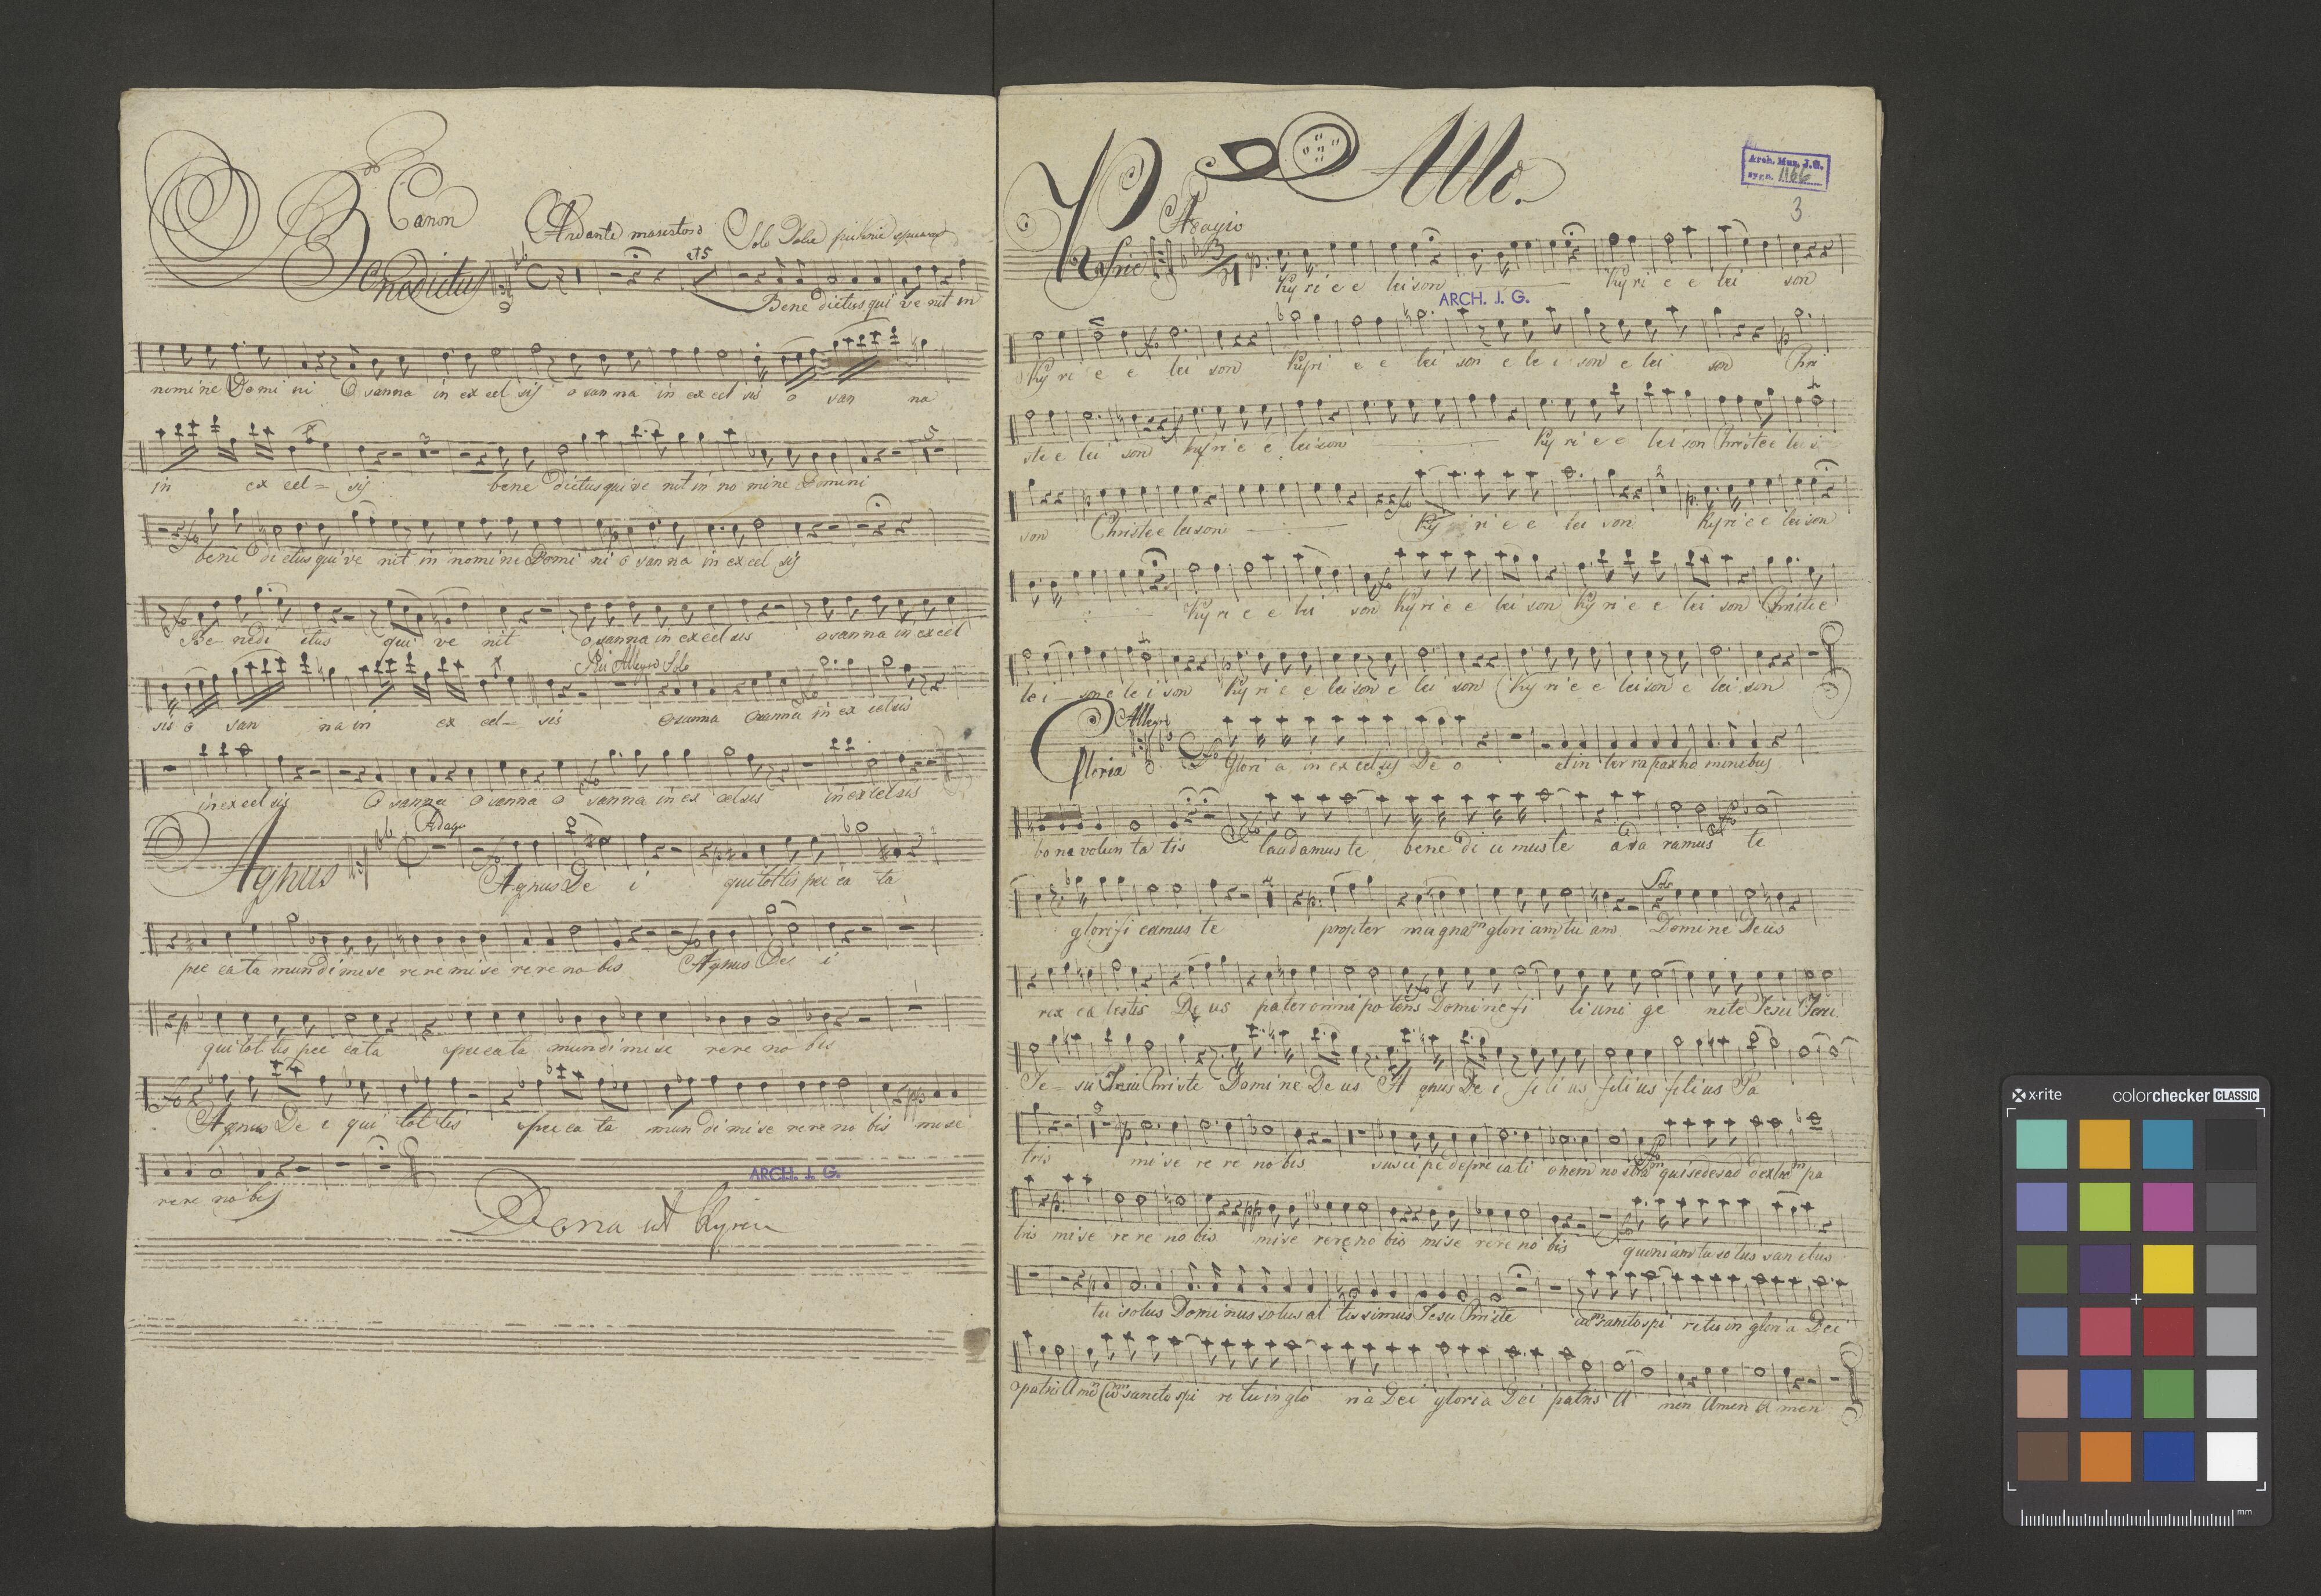 Canon
Andante maestoso Solo Dolce
Benedictus
Bene dictus qui ve nit in
nomine Domi ni O sanna in ex cel sis o san na in ex cel sis o san na
in ex cel = sis bene dictus qui ve nit in no mine Domini
bene dictus qui ve nit in nomine Domi ni o san na in ex cel sis
Be nedi ctus qui ve nit o sanna in excel sis o san na in excel
Piu Allegro Solo
sis o san na in ex cel = sis osanna osanna in ex celsis
in ex cel sis O sanna O sanna o sanna in ex celsis in excelsis
Adagio
Agnus
Agnus De i qui tol lis pec ca ta
pec ca ta mundi mise re re mise re re no bis Agnus De i
qui tol lis pec cata peccata mundi mise rere no bis
Agnus De i qui tol lis pec ca ta mun di mise rere no bis mise
rere no bis
ARCH. J. G.
Dona ut Kyrie
Allo.
Arch. Muz. J.G.
sygn. 1166
3
Adagio
Kyrie
Ky ri e e leison Ky ri e e lei son
ARCH. J. G.
Ky ri e e lei son Kyri e e lei son e le i son e lei son Chri
ste e lei son Ky ri e e leison Ky ri e e lei son Christe e lei
son Christe e leison Ky ri e e lei son Kyri e e leison
Ky ri e e lei son Ky ri e e lei son Ky ri e e lei son Christe e
le i son e le i son Ky ri e e leison e lei son Ky ri e e leison e lei son
Allegro
Gloria
Glori a in excelsis De o et in ter ra pax ho minibus
bona volun ta tis laudamus te bene di ci mus te ado ramus te
Solo
glorifi camus te propter magnam gloriam tu am Domine Deus
rex ca lestis De us pater omni po tens Domine fi li uni ge nite Jesu Jesu
Je = su Jesu Christe Domine De us A gnus De i fi li us filius filius Pa
tris mise re re no bis susci pe depre cati onem nostram qui sedes ad dextram pa
tris mise re re no bis mise rere no bis mise rere no bis quoniam tu so lus san ctus
tu solus Dominus solus al tissimus Jesu Christe cum sancto spi ritu in glori a Dei
patris Amen Cum sancto spi ri tu in glo ria Dei gloria Dei patris A men Amen A men
x·rite colorchecker CLASSIC
mm